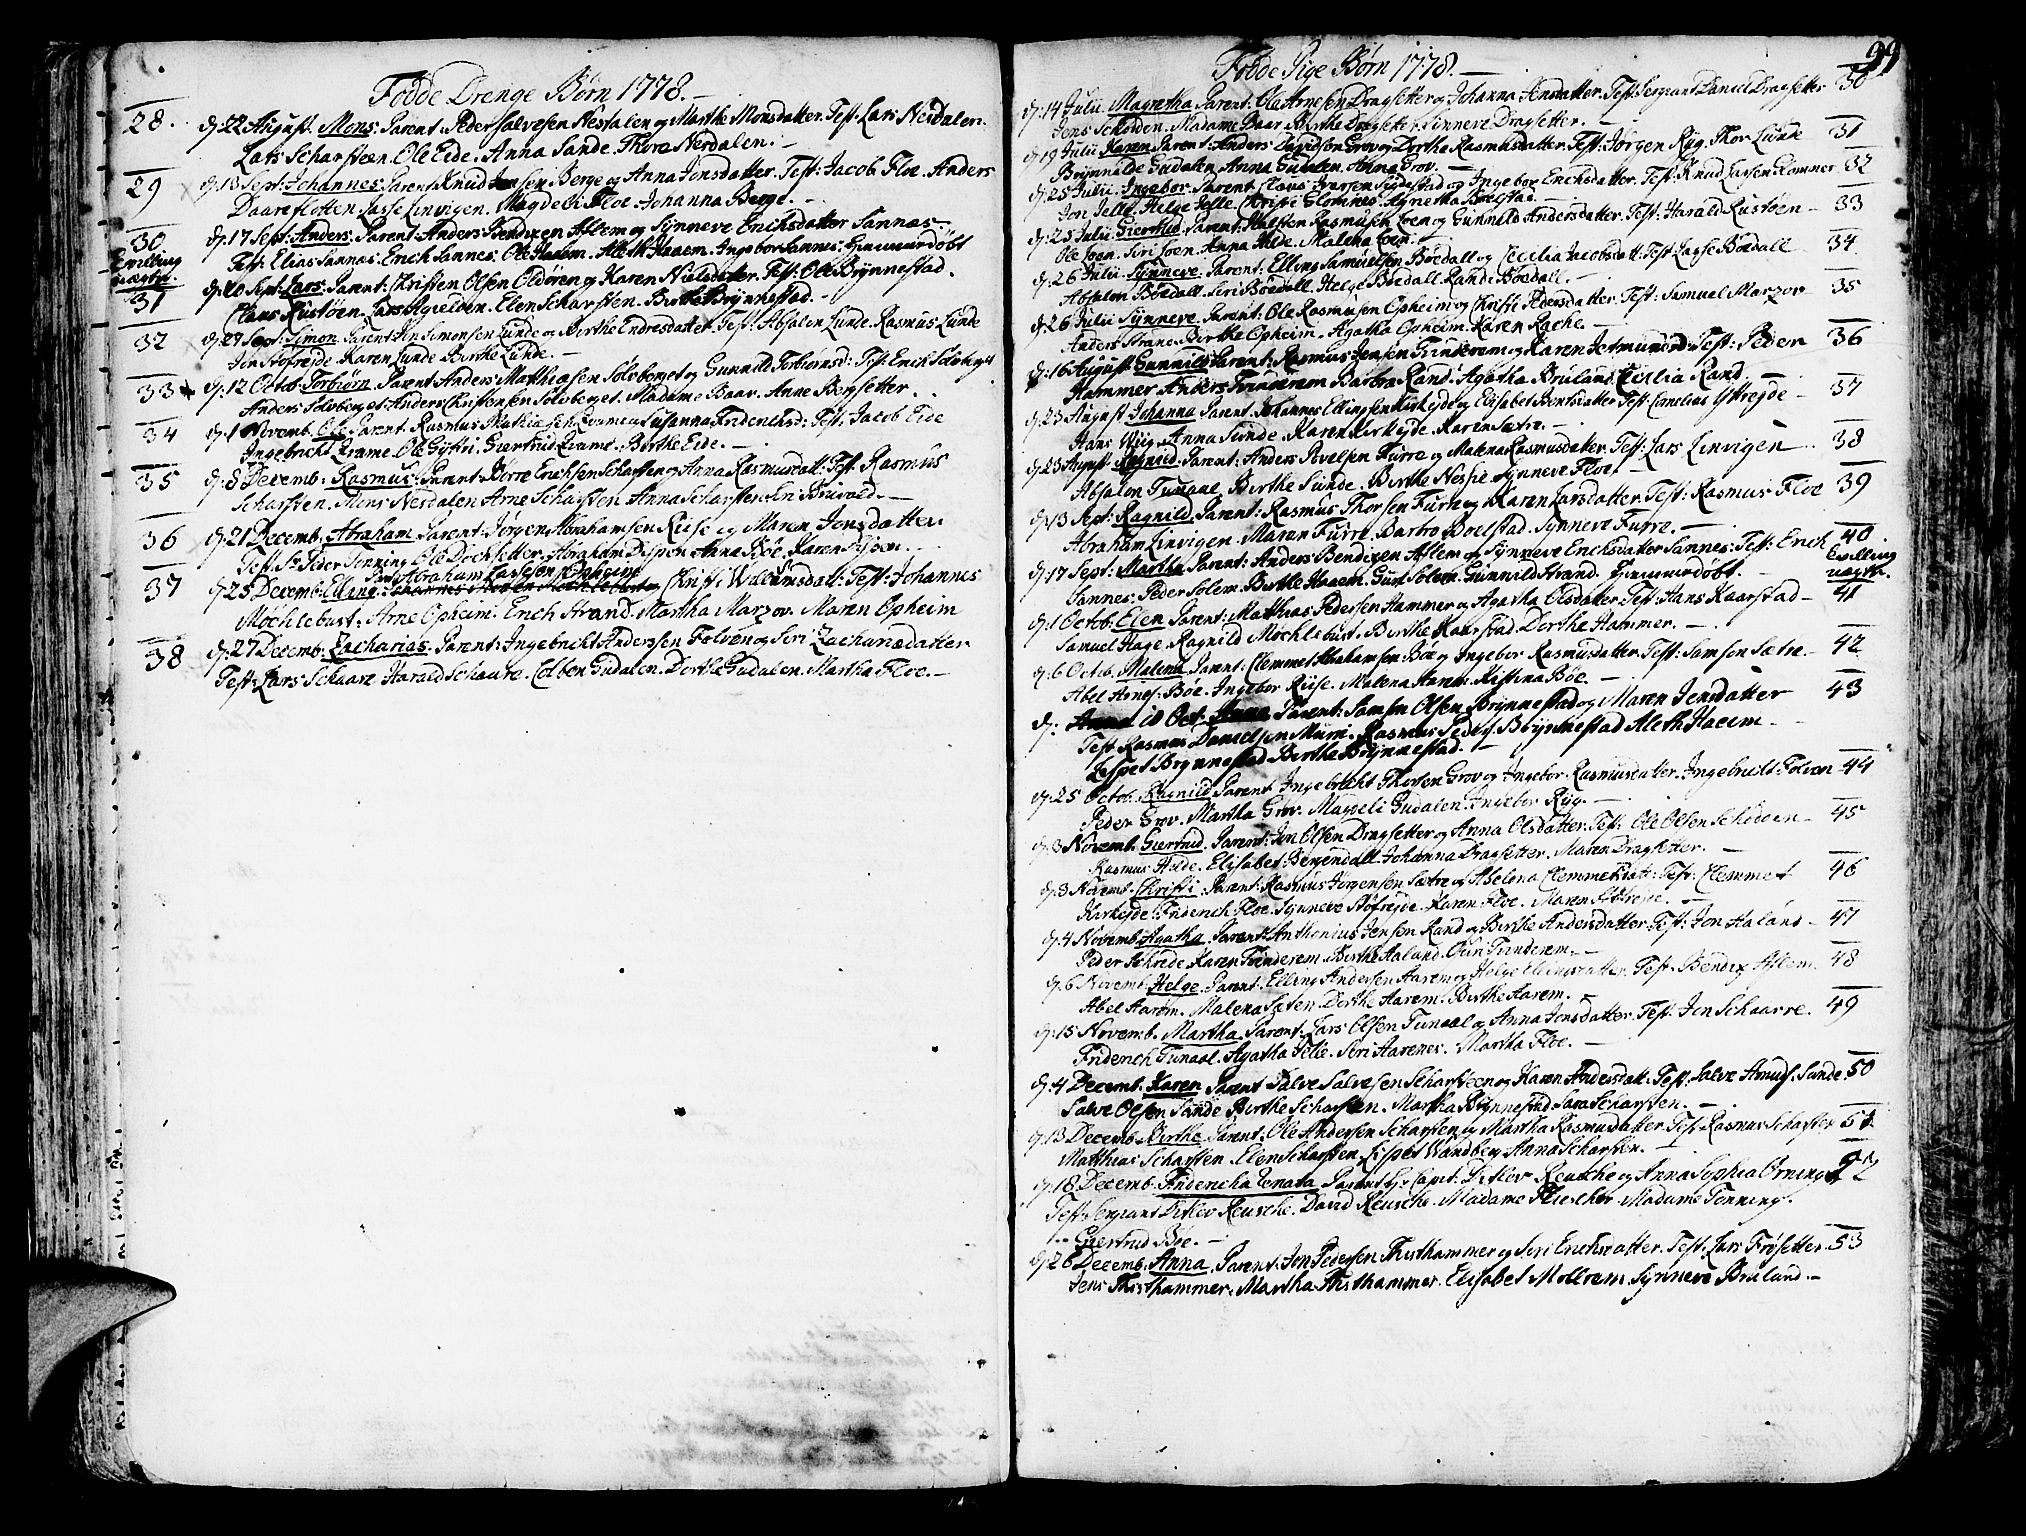 Fødde Drenge Børn 1778.
28. d: 22 August. Mons. Parent: Peder Salvesen Nesdalen og Marthe Monsdatter. Test: Lars Nesdalen.
Lars Scharsteen. Ole Eide. Anna Sande. Thore Nesdalen.
29 d: 13 Sept: Johannes. Parent: Knud Jensen Berge og Anna Jonsdatter. Test: Jacob Floe. Anders
Daareflotten. Lasse Linvigen. Magdeli Floe. Johanna Berge.
30 d: 17 Sept: Anders. Parent: Anders Bendixen Aslem og Synneve Erichsdatter Sannæs.
Tvilling
Test: Elias Sannæs. Erich Sannes. Ole Haaem. Aleth Haaem. Ingebor Sannes. Hiemmedøbt
uægte.
31 d: 20 Sept: Lars. Parent: Christen Olsen Oldøren og Karen Nielsdatter. Test: Ole Brynnestad.
Claus Rustøen. Lars Agielden. Elen Scharsten. Birthe Brynnestad.
32 d: 27 Sept: Simon. Parent: Jon Simonsen Lunde og Birthe Endresdatter. Test: Absalon Lunde. Rasmus Lunde
Jon Stofrejde. Karen Lunde. Birthe Lunde.
33 d: 12 Octob. Torbiørn. Parent: Anders Matthiæsen Solvberget og Gunnild Torbiørnsd: Test: Erich Solvberget
Anders Solvberget. Anders Christensen Solvberget. Madame Baar. Anne Bergsetter.
34 d: 1 Novemb. Ole. Parent: Rasmus Mathiasen Qvame og Susanna Fridrichsd: Test: Jacob Eide
Ingebricht Qvame. Ole Gytri. Giertrud Qvame. Birthe Eide.
35 d: 8 Decemb. Rasmus. Parent: Børre Erichsen Scharsten og Anna Rasmusdatt: Test: Rasmus
Scharsten. Mons Nesdalen. Arne Scharsten. Anna Scharsten.
36 d: 21 Decemb. Abraham. Parent: Jørgen Abrahamsen Riise og Maren Jonsdatter.
Test: Sr Peder Tønning. Abraham Anna Bøe. Karen
Abraham Lassesen Opheim
37 d: 25 Decemb. Elling. Christi Willumsdatt: Test: Johannes
Møchlebust. Arne Opheim. Erich Strand. Martha Marzov. Maren Opheim
38 d: 27 Decemb. Zacharias. Parent: Ingebricht Anderssen Folven og Siri Zachariædatter
Test: Lars Schaare. Harald Schaare. Colben Gudalen. Dorthe Gudalen. Martha Floe.
99
Fødde Pige Børn 1778.
d: 14 Julii. Magretha. Parent: Ole Arnesen Dragsetter og Johanna Jensdatter. Test: Sergeant Daniel Dragsetter 30
Jens Schodden. Madame Baar. Birthe Dragsetter. Sinneve Dragsetter.
d: 19 Julii. Karen. Parent: Anders Davidson Grov og Dorthe Rasmusdatter. Test: Jørgen Ryg. Thor Lunde 31
Brynnilde Gudalen. Anna Gudalen. Anna Grov.
d: 25 Julii. Ingebor. Parent: Claus Iversen og Ingebor Erichsdatter. Test: Knud Larsen Kommer 32
Jon Jelle. Helge Jelle. Christi Glomnes. Agnetha Boelstad.
d: 25 Julii. Giertrud. Parent: Halsten Rasmusen Loen og Gunnild Andersdatter. Test: Harald Rustøen 33
Ole Loen. Siri Loen. Anna Hilde. Malena Loen.
d: 26 Julii. Synneve. Parent: Elling Samuelsen Bøedall og Cecilia Jacobsdatt: Test: Lasse Bøedall 34
Absalon Bøedall. Siri Bøedall. Helge Bøedall. Randi Bøedall.
d: 26 Julii. Synneve. Parent: Ole Rasmusen Opheim og Christi Pedersdatter. Test: Samuel Marzov 35
Anders Strand. Birthe Opheim. Agatha Opheim. Karen Rache.
d: 16 August. Gunnild. Parent: Rasmus Jensen Tvinderem og Karen Jetmundsd: Test: Peder 36
Hammer. Anders Tvinderem. Barbro Rand. Agatha Bruland. Cecilia Rand.
d: 23 August. Johanna. Parent: Johannes Ellingsen Kirkejde og Elisabet Berntsdatter. Test: Cornelius Yttrejde 37
Hans Wiig. Anna Sunde. Karen Kirkejde. Karen Sætre.
d: 23 August. Ragnild. Parent: Anders Povelsen Furre og Malena Rasmusdatter. Test: Lars Linvigen 38
Absalon Tunaal. Birthe Sunde. Birthe Synneve Floe.
d: 13 Sept: Ragnild. Parent: Rasmus Thorsen Furre og Karen Larsdatter. Test: Rasmus Floe 39
Abraham Linvigen. Maren Furre. Barbro Boelstad. Synneve Furre.
d: 17 Sept: Martha. Parent: Anders Bendixen Aslem og Synneve Erichsdatter Sannes. Test: Erich 40
Tvilling
Sannes. Peder Solem. Birthe Haaem. Guri Solem. Gunnild Strand. Hiemmedøbt. uægte.
d: 1 Octob. Elen. Parent: Matthias Pedersen Hammer og Agatha Olsdatter. Test: Hans Kaarstad 41
Samuel Hage. Ragnild Møchlebust. Birthe Kaarstad. Dorthe Hammer.
d: 6 Octob. Malena. Parent: Clemmet Abrahamsen Bøe og Ingebor Rasmusdatter. Test: Samsen Sætre 42
Abel Arnes: Bøe. Ingebor Riise. Malena Kistina Bøe.
d: 18 Oct: Anna. Parent: Samsen Olsen Brynnestad og Maren Jensdatter 43
Test: Rasmus Danielsen Muri. Rasmus Peders: Brynnestad. Aleth Haeem
Lispet Brynnestad. Birthe Brynnestad.
d: 25 Octob. Ragnild. Parent: Ingebricht Thorsen Grov og Ingebor Rasmusdatter. Ingebricht Folven 44
Peder Grov. Martha Grov. Magdeli Gudalen. Ingebor Ryg.
d: 3 Novemb. Giertrud. Parent: Jon Olsen Dragsetter og Anna Olsdatter. Test: Ole Olsen Schodden 45
Rasmus Hilde. Elisabet Bergendall. Johanna Dragsetter. Maren Dragsetter.
d: 3 Novemb. Christi. Parent: Rasmus Jørgensen Sætre og Abelona Clemmetsdatt: Test: Clemmet 46
Kirkejde. Friderich Floe. Synneve Stofrejde. Karen Floe. Maren Stofrejde.
d: 4 Novemb. Agatha. Parent: Anthonius Jensen Rand og Birthe Andersdatter. Test: Jon Haland 47
Peder Schrede. Karen Tvinderem. Birthe Haland. Guri Tvinderem.
d: 6 Novemb. Helge. Parent: Elling Andersen Aarem og Helge Ellingsdatter. Test: Bendix Aslem 48
Abel Aarem. Malena Sæten. Dorthe Aarem. Birthe Aarem.
d: 15 Novemb. Martha. Parent: Lars Olsen Tunaal og Anna Jonsdatter. Test: Jon Schaarre. 49
Friderich Tunaal. Agatha Jelle. Siri Aarenes. Martha Floe.
d: 4 Decemb. Karen. Parent: Salve Salvesen Scharsteen og Karen Andersdatt: Test: Salve Amuds: Sande 50
Salve Olsen Sande. Birthe Scharsten. Martha Brynnestad. Sara Scharsten.
d: 13 Decemb. Birthe. Parent: Ole Andersen Scharsten og Martha Rasmusdatter. Test: Rasmus Scharsten 51
Matthias Scharsten. Elen Scharsten. Lispet Wandberg. Anna Scharsten.
d: 18 Decemb. Fridericha Renata. Parent: Hr Capit: Ditlev Reusche og Anna Sophia Ørning 52
Test: Sergeant Ditlev Reusche. David Reusche. Madame Fleischer. Madame Tønning.
Giertrud Bøe.
d: 26 Decemb. Anna. Parent: Jon Pedersen Thisthammer og Siri Erichsdatter. Test: Lars Frøsetter. 53
Jens Thisthammer. Martha Thisthammer. Elisabet Mollrem. Synneve Bruland.